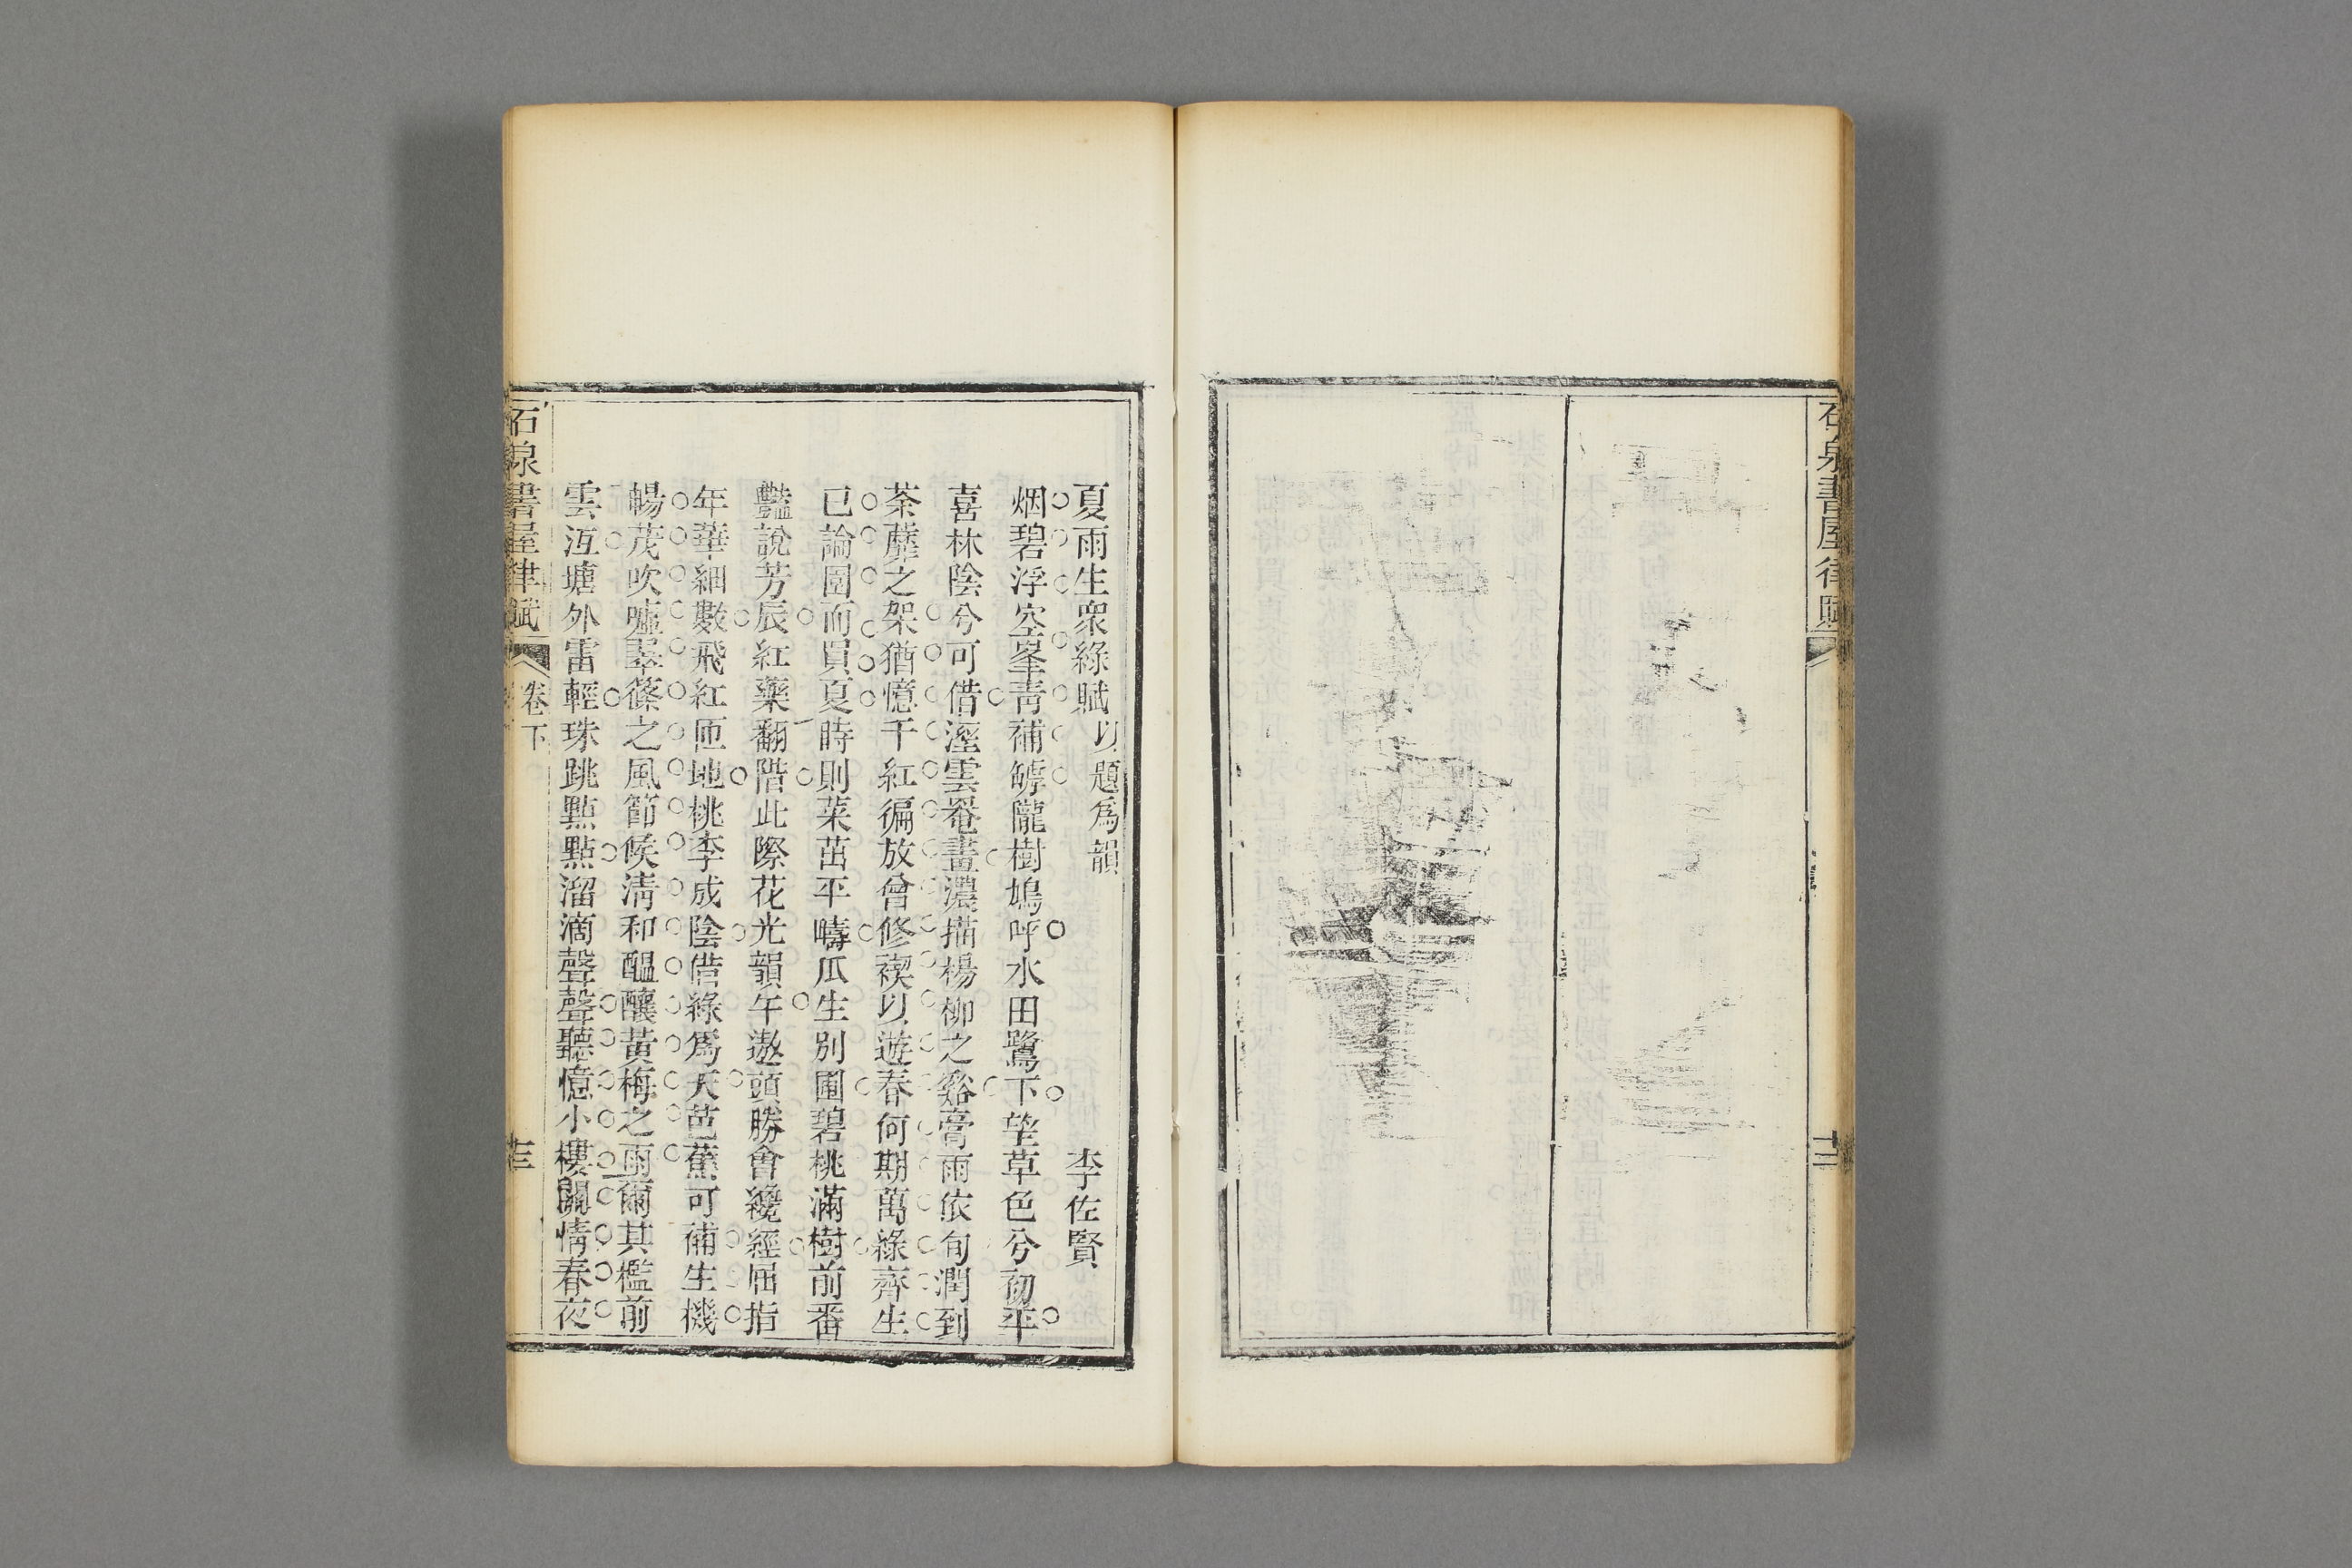 石泉書屋律賦
十二
夏雨生衆綠賦以題爲韻 李佐賢
烟碧浮空峯靑補罅隴樹鳩呼水田鷺下望草色兮初平
喜林陰兮可借溼雲罨畫濃描楊柳之谿膏雨依旬潤到
荼蘼之架猶憶千紅徧放曾修禊以遊春何期萬綠齊生
已論園而買夏時則菜茁平疇瓜生別圃碧桃滿樹前番
豔說芳辰紅藥翻階此際花光韻午遨頭勝會纔經屈指
年華細數飛紅匝地桃李成陰借綠爲天芭蕉可補生機
暢茂吹噓翠篠之風節候淸和醞釀黃梅之雨爾其檻前
雲沍塘外雷輕珠跳點點溜滴聲聲聽憶小樓關情春夜
石泉書屋律賦 卷下 十三